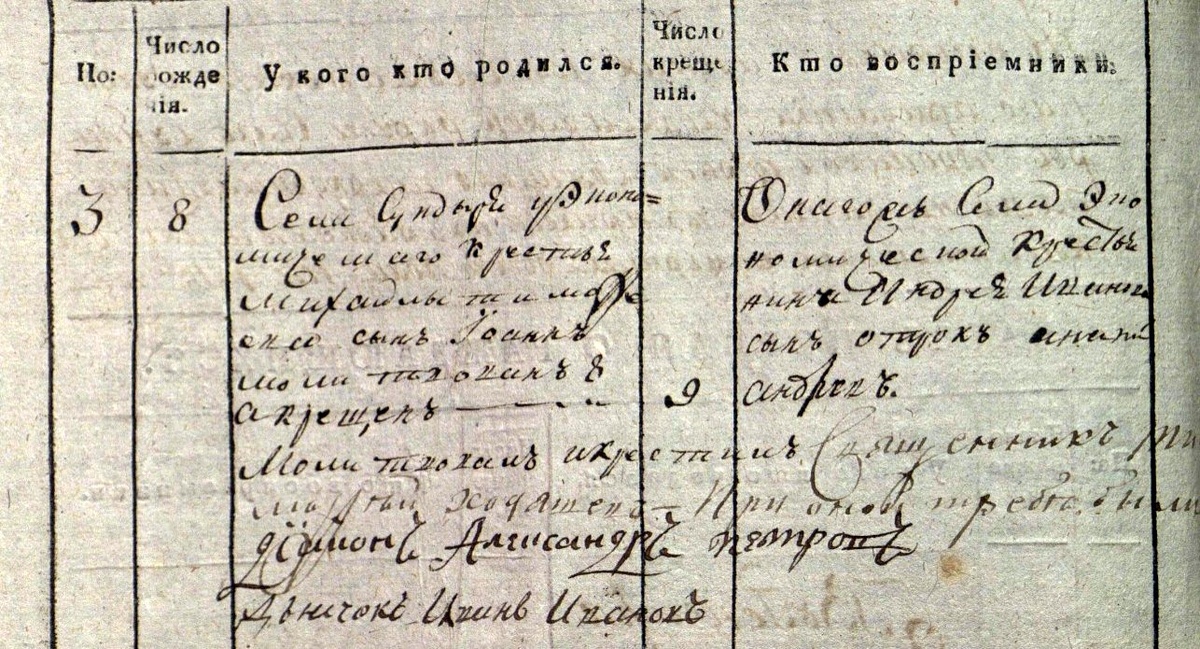 По:
Число рожденія.
У кого кто родился.
Число крещенія.
Кто воспріемники.
3
8
Села Сундыря у Эконо=
мическаго крестьян
Михайлы Тимофѣ
ева сынъ Іоаннъ
молитвованъ 8
а крещенъ
9
Онагожъ села Эко
номической крестья
нина Андрея Иванова
сынъ отрокъ
андреевъ.
Молитвовалъ и крестилъ Священникъ
При оной требѣ были
Діаконъ Александръ Петровъ
Дьячокъ Иванъ Ивановъ